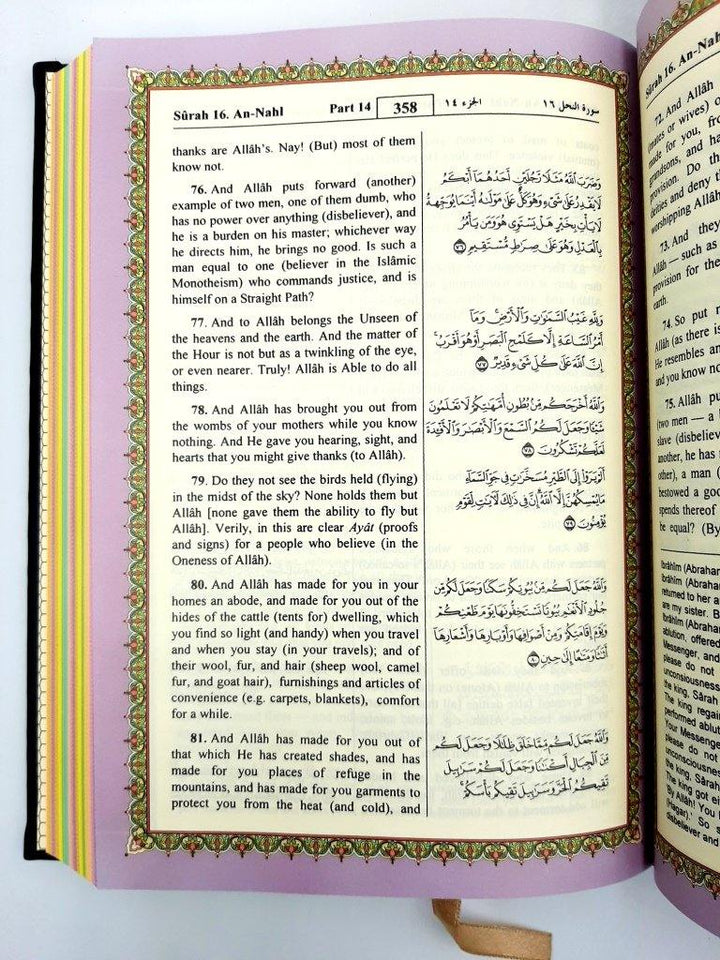 Sûrah 16. An-Nahl Part 14 358 الجزء ١٤ سورة النحل ١٦
thanks are Allâh's. Nay! (But) most of them
know not.
76. And Allâh puts forward (another)
example of two men, one of them dumb, who
has no power over anything (disbeliever), and
he is a burden on his master; whichever way
he directs him, he brings no good. Is such a
man equal to one (believer in the Islâmic
Monotheism) who commands justice, and is
himself on a Straight Path?
77. And to Allâh belongs the Unseen of
the heavens and the earth. And the matter of
the Hour is not but as a twinkling of the eye,
or even nearer. Truly! Allâh is Able to do all
things.
78. And Allâh has brought you out from
the wombs of your mothers while you know
nothing. And He gave you hearing, sight, and
hearts that you might give thanks (to Allâh).
79. Do they not see the birds held (flying)
in the midst of the sky? None holds them but
Allâh [none gave them the ability to fly but
Allâh]. Verily, in this are clear Ayât (proofs
and signs) for a people who believe (in the
Oneness of Allâh).
80. And Allâh has made for you in your
homes an abode, and made for you out of the
hides of the cattle (tents for) dwelling, which
you find so light (and handy) when you travel
and when you stay (in your travels); and of
their wool, fur, and hair (sheep wool, camel
fur, and goat hair), furnishings and articles of
convenience (e.g. carpets, blankets), comfort
for a while.
81. And Allâh has made for you out of
that which He has created shades, and has
made for you places of refuge in the
mountains, and has made for you garments to
protect you from the heat (and cold), and
وَضَرَبَ ٱللَّهُ مَثَلًا رَّجُلَيْنِ أَحَدُهُمَآ أَبْكَمُ
لَا يَقْدِرُ عَلَىٰ شَىْءٍ وَهُوَ كَلٌّ عَلَىٰ مَوْلَىٰهُ أَيْنَمَا يُوَجِّههُّ
لَا يَأْتِ بِخَيْرٍ هَلْ يَسْتَوِى هُوَ وَمَن يَأْمُرُ
بِٱلْعَدْلِ وَهُوَ عَلَىٰ صِرَٰطٍ مُّسْتَقِيمٍ ٧٦
وَلِلَّهِ غَيْبُ ٱلسَّمَٰوَٰتِ وَٱلْأَرْضِ وَمَآ
أَمْرُ ٱلسَّاعَةِ إِلَّا كَلَمْحِ ٱلْبَصَرِ أَوْ هُوَ أَقْرَبُ
إِنَّ ٱللَّهَ عَلَىٰ كُلِّ شَىْءٍ قَدِيرٌ ٧٧
وَٱللَّهُ أَخْرَجَكُم مِّنۢ بُطُونِ أُمَّهَٰتِكُمْ لَا تَعْلَمُونَ
شَيْـًٔا وَجَعَلَ لَكُمُ ٱلسَّمْعَ وَٱلْأَبْصَٰرَ وَٱلْأَفْـِٔدَةَ
لَعَلَّكُمْ تَشْكُرُونَ ٧٨
أَلَمْ يَرَوْا۟ إِلَى ٱلطَّيْرِ مُسَخَّرَٰتٍ فِى جَوِّ ٱلسَّمَآءِ
مَا يُمْسِكُهُنَّ إِلَّا ٱللَّهُ إِنَّ فِى ذَٰلِكَ لَـَٔايَٰتٍ لِّقَوْمٍ
يُؤْمِنُونَ ٧٩
وَٱللَّهُ جَعَلَ لَكُم مِّنۢ بُيُوتِكُمْ سَكَنًا وَجَعَلَ لَكُم مِّن
جُلُودِ ٱلْأَنْعَٰمِ بُيُوتًا تَسْتَخِفُّونَهَا يَوْمَ ظَعْنِكُمْ
وَيَوْمَ إِقَامَتِكُمْ وَمِنْ أَصْوَافِهَا وَأَوْبَارِهَا وَأَشْعَارِهَآ
أَثَٰثًا وَمَتَٰعًا إِلَىٰ حِينٍ ٨٠
وَٱللَّهُ جَعَلَ لَكُم مِّمَّا خَلَقَ ظِلَٰلًا وَجَعَلَ لَكُم
مِّنَ ٱلْجِبَالِ أَكْنَٰنًا وَجَعَلَ لَكُمْ سَرَٰبِيلَ
تَقِيكُمُ ٱلْحَرَّ وَسَرَٰبِيلَ تَقِيكُم بَأْسَكُمْ
Sûrah 16. An-Nah
72. And Allâh
(mates or wives) o
made for you, fro
grandsons, and ha
provision. Do the
deities and deny th
worshipping Allâh
73. And they
Allâh — such as
provision for the
earth.
74. So put n
Allâh (as there is
He resembles an
and you know no
75. Allâh pu
(two men — a
slave (disbeliev
another, he has
other), a man (
bestowed a goo
spends thereof
be equal? (By
Ibrâhîm (Abrahar
Ibrâhîm (Abrahar
returned to her a
are my sister. B
Ibrâhîm (Abrahar
ablution, offered
Messenger, and
please do not
unconsciousness
the king, Sârah
The king regain
performed ablut
Your Messenger
please do not
unconsciousness
the king, Sârah
The king got ei
'By Allâh! You
(Hagar).' So s
disbeliever and